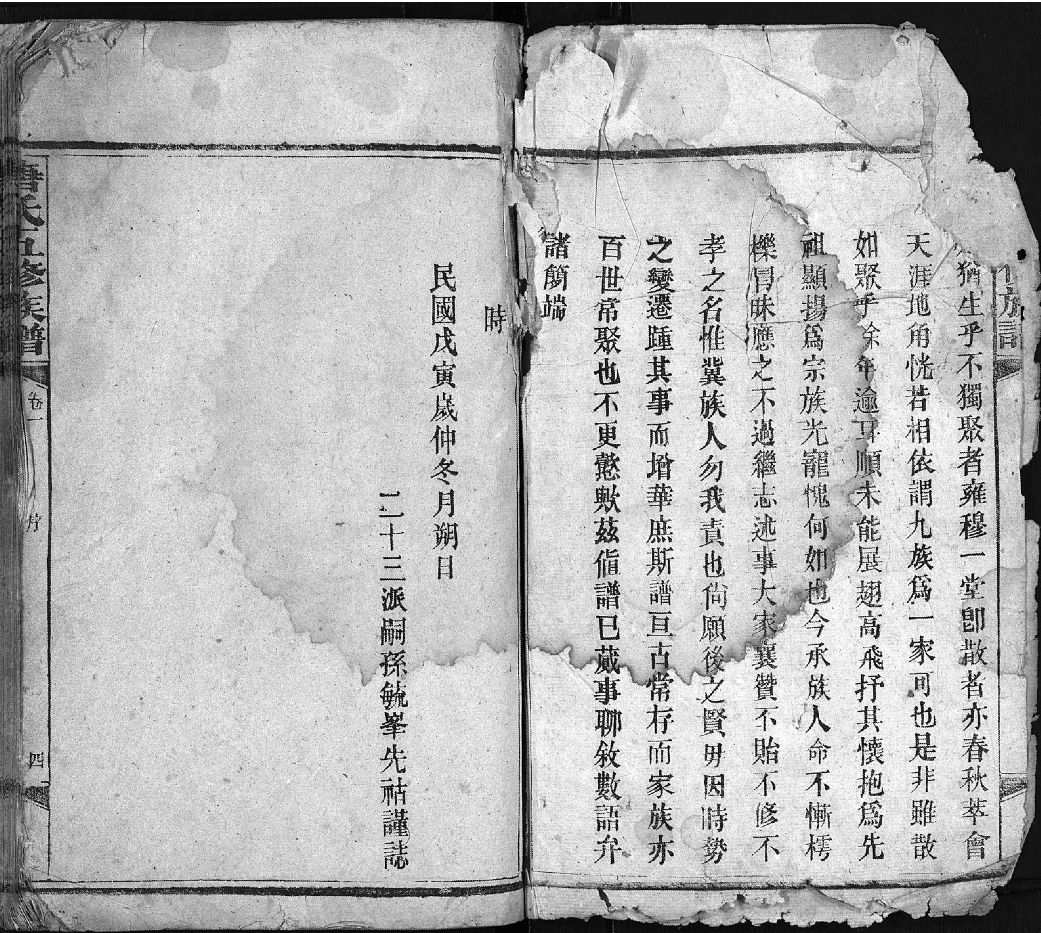 猶生乎不獨聚者雍穆一堂卽散者亦春秋萃會
天涯地角恍若相依謂九族爲一家可也是非雖散
如聚乎餘年逾耳順未能展翅高飛抒其懷抱爲先
祖顯揚爲宗族光寵愧何如也今承族人命不慚樗
櫟冒昧應之不過繼志述事大家襄贊不貽不修不
孝之名惟冀族人勿我責也尙願後之賢毋因時勢
之變遷踵其事而增華庶斯譜亘古常存而家族亦
百世常聚也不更懿歟茲值譜已蕆事聊敘數語弁
諸簡端
時
民國戊寅歲仲冬月朔日
二十三派嗣孫毓峯先祜謹誌
氏五修族譜
卷一
序
四